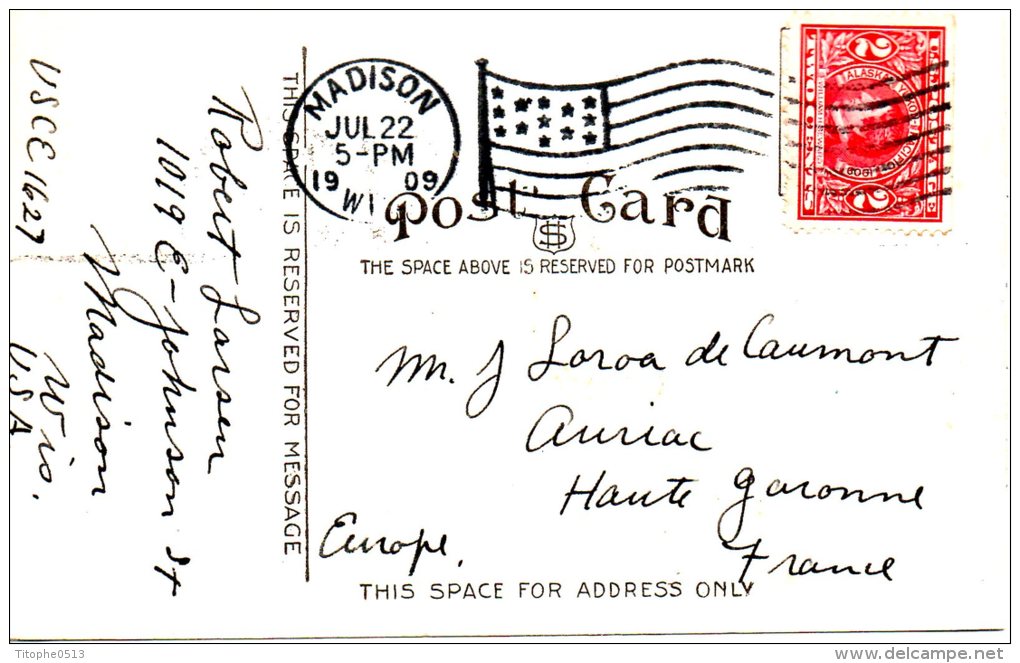 USCE 1627
Robert Larsen
1019 E-Johnson St
Madison
Wis.
USA
THIS SPACE IS RESERVED FOR MESSAGE
MADISON
JUL 22
5-PM
19 09
WI
U.S. POSTAGE
ALASKA YUKON PACIFIC 1909
2 2
Post Card
THE SPACE ABOVE IS RESERVED FOR POSTMARK
Mr. J Loroa de Caumont
Auriac
Haute Garonne
France
Europe.
THIS SPACE FOR ADDRESS ONLY
Titophe0513
www.delcampe.net